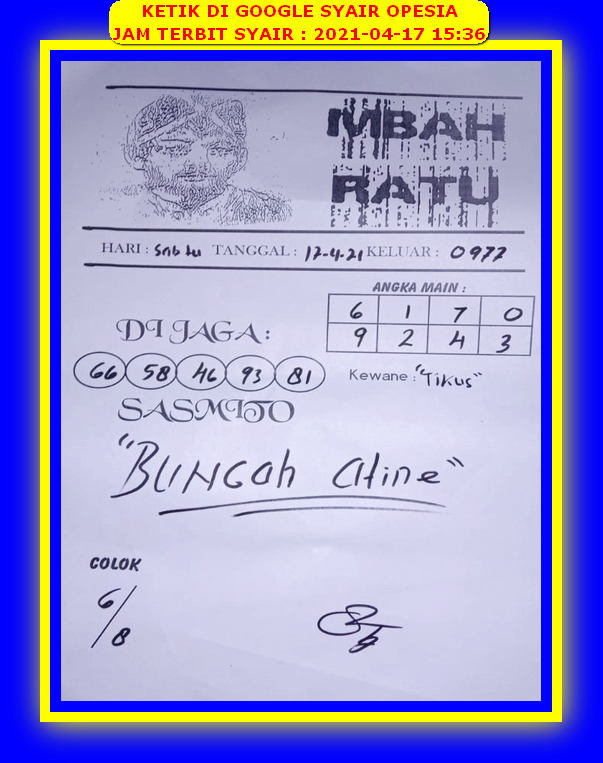 KETIK DI GOOGLE SYAIR OPESIA
JAM TERBIT SYAIR : 2021-04-17 15:36
MBAH
RATU
HARI : Sabtu TANGGAL : 17-4-21 KELUAR : 0977
ANGKA MAIN :
6 1 7 0
9 2 4 3
DI JAGA :
66 58 46 93 81
Kewane : "Tikus"
SASMITO
"BUNGah atine"
COLOK
6/8